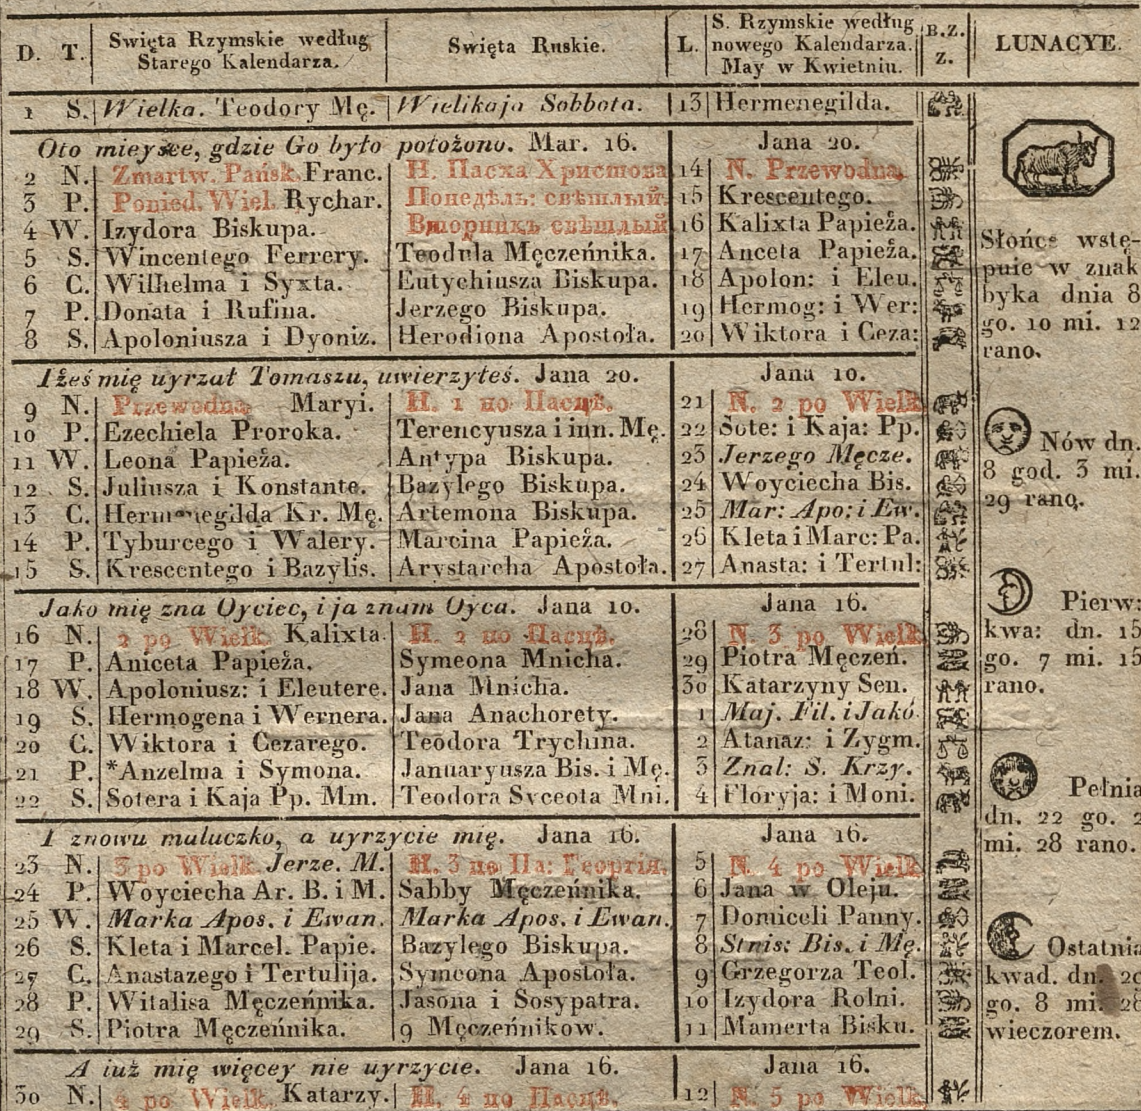 D. T. Święta Rzymskie według Starego Kalendarza. Święta Ruskie. L. S. Rzymskie według nowego Kalendarza. May w Kwietniu. B.Z. Z. LUNACYE.
1 S. Wielka. Teodory Mę. Wielikaja Sobbota. 13 Hermenegilda.
Oto mieysce, gdzie Go było położono. Mar. 16. Jana 20.
2 N. Zmartw. Pańsk. Franc. Н. Пасха Христова 14 N. Przewodna.
3 P. Ponied. Wiel. Rychar. Понедѣль: свѣтлый. 15 Krescentego.
4 W. Izydora Biskupa. Вторникъ свѣтлый 16 Kalixta Papieża.
5 S. Wincentego Ferrery. Teodula Męczeńnika. 17 Anceta Papieża.
6 C. Wilhelma i Syxta. Eutychiusza Biskupa. 18 Apolon: i Eleu.
7 P. Donata i Rufina. Jerzego Biskupa. 19 Hermog: i Wer:
8 S. Apoloniusza i Dyoniz. Herodiona Apostoła. 20 Wiktora i Ceza:
Iżeś mię uyrzał Tomaszu, uwierzyłeś. Jana 20. Jana 10.
9 N. Przewodna. Maryi. Н. 1 по Пасцѣ. 21 N. 2 po Wielk.
10 P. Ezechiela Proroka. Terencyusza i inn. Mę. 22 Sote: i Kaja: Pp.
11 W. Leona Papieża. Antypa Biskupa. 23 Jerzego Męcze.
12 S. Juliusza i Konstante. Bazylego Biskupa. 24 Woyciecha Bis.
13 C. Hermenegilda Kr. Mę. Artemona Biskupa. 25 Mar: Apo: i Ew.
14 P. Tyburcego i Walery. Marcina Papieża. 26 Kleta i Marc: Pa.
15 S. Krescentego i Bazylis. Arystarcha Apostoła. 27 Anasta: i Tertul:
Jako mię zna Oyciec, i ja znam Oyca. Jana 10. Jana 16.
16 N. 2 po Wielk. Kalixta Н. 2 по Пасцѣ. 28 N. 3 po Wielk.
17 P. Aniceta Papieża. Symeona Mnicha. 29 Piotra Męczeń.
18 W. Apoloniusz: i Eleutere. Jana Mnicha. 30 Katarzyny Sen.
19 S. Hermogena i Wernera. Jana Anachorety. 1 Maj. Fil. i Jakó
20 C. Wiktora i Cezarego. Teodora Trychina. 2 Atanaz: i Zygm.
21 P. *Anzelma i Symona. Januaryusza Bis. i Mę. 3 Znal: S. Krzy.
22 S. Sotera i Kaja Pp. Mm. Teodora Syceota Mni. 4 Floryja: i Moni.
I znowu maluczko, a uyrzycie mię. Jana 16. Jana 16.
23 N. 3 po Wielk. Jerze. M. Н. 3 по Па: Георгія. 5 N. 4 po Wielk.
24 P. Woyciecha Ar. B. i M. Sabby Męczeńnika. 6 Jana w Oleju.
25 W. Marka Apos. i Ewan. Marka Apos. i Ewan. 7 Domiceli Panny.
26 S. Kleta i Marcel. Papie. Bazylego Biskupa. 8 Stnis: Bis. i Mę.
27 C. Anastazego i Tertulija. Symeona Apostoła. 9 Grzegorza Teol.
28 P. Witalisa Męczeńnika. Jasona i Sosypatra. 10 Izydora Rolni.
29 S. Piotra Męczeńnika. 9 Męczeńnikow. 11 Mamerta Bisku.
A iuż mię więcey nie uyrzycie. Jana 16. Jana 16.
30 N. 4 po Wielk. Katarzy. Н. 4 по Пасцѣ. 12 N. 5 po Wielk.
Słońce wstę-
puie w znak
byka dnia 8
go. 10 mi. 12
rano.
Nów dn.
8 god. 3 mi.
29 rano.
Pierw:
kwa: dn. 15
go. 7 mi. 15
rano.
Pełnia
dn. 22 go. 2
mi. 28 rano.
Ostatnia
kwad. dn.
go. 8 mi.
wieczorem.